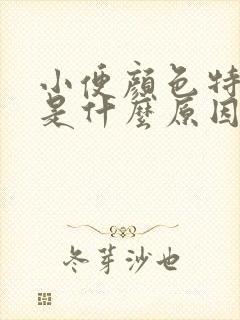 小便顏色特
是什麼原因
冬芽沙也